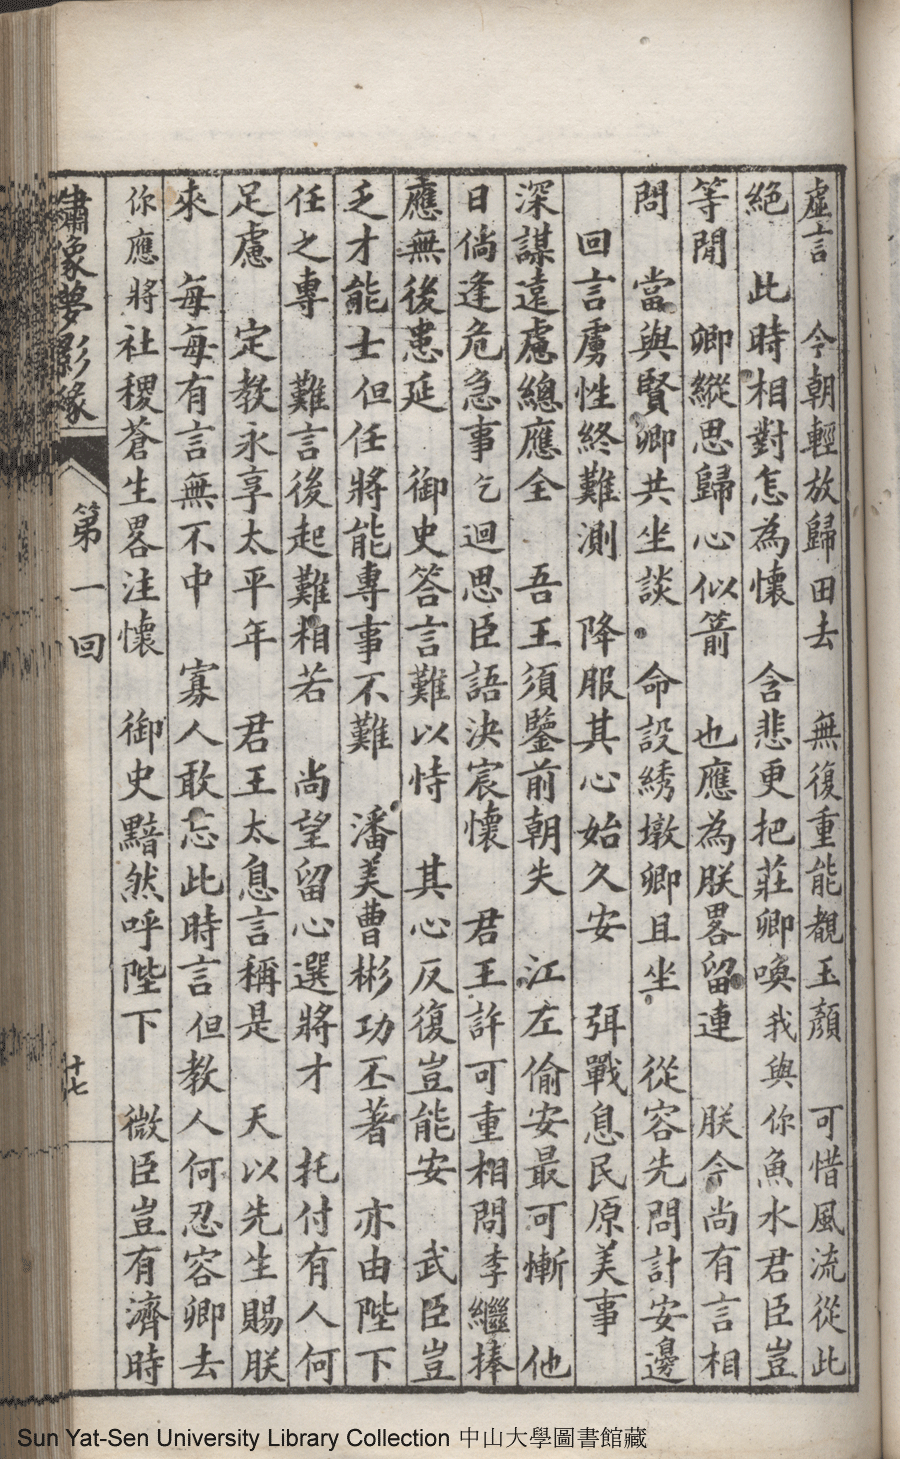 虛言　今朝輕放歸田去　無復重能覩玉顏　可惜風流從此
絕　此時相對怎為懷　含悲更把莊卿喚我與你魚水君臣豈
等閒　卿縱思歸心似箭　也應為朕畧留連　朕今尚有言相
問　當與賢卿共坐談　命設綉墩卿且坐　從容先問計安邊
回言虜性終難測　降服其心始久安　弭戰息民原美事
深謀遠慮總應全　吾王須鑒前朝失　江左偷安最可慚　他
日倘逢危急事乞迴思臣語決宸懷　君王許可重相問李繼捧
應無後患延　御史答言難以恃　其心反復豈能安　武臣豈
乏才能士但任將能專事不難　潘美曹彬功丕著　亦由陛下
任之專　難言後起難相若　尚望留心選將才　托付有人何
足慮　定教永享太平年　君王太息言稱是　天以先生賜朕
來　每每有言無不中　寡人敢忘此時言但教人何忍容卿去
你應將社稷蒼生畧注懷　御史黯然呼陛下　微臣豈有濟時
繡象夢影緣
第一回
十七
Sun Yat-Sen University Library Collection 中山大學圖書館藏